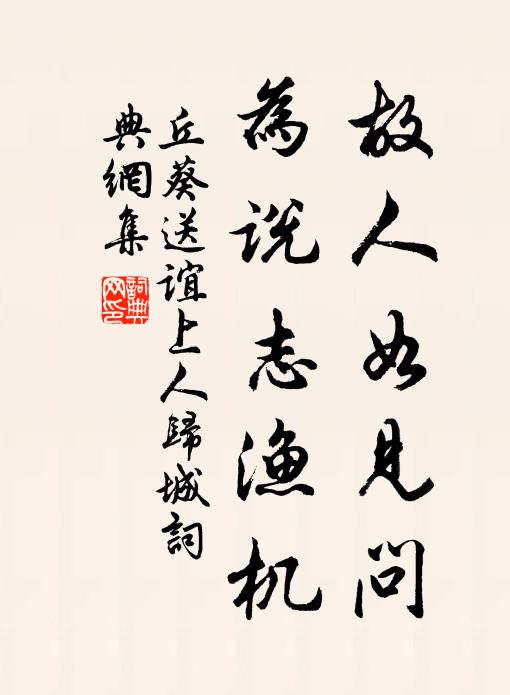 故人如見問
為説志漁机
丘葵送誼上人歸城詞
典網集
詞典网印